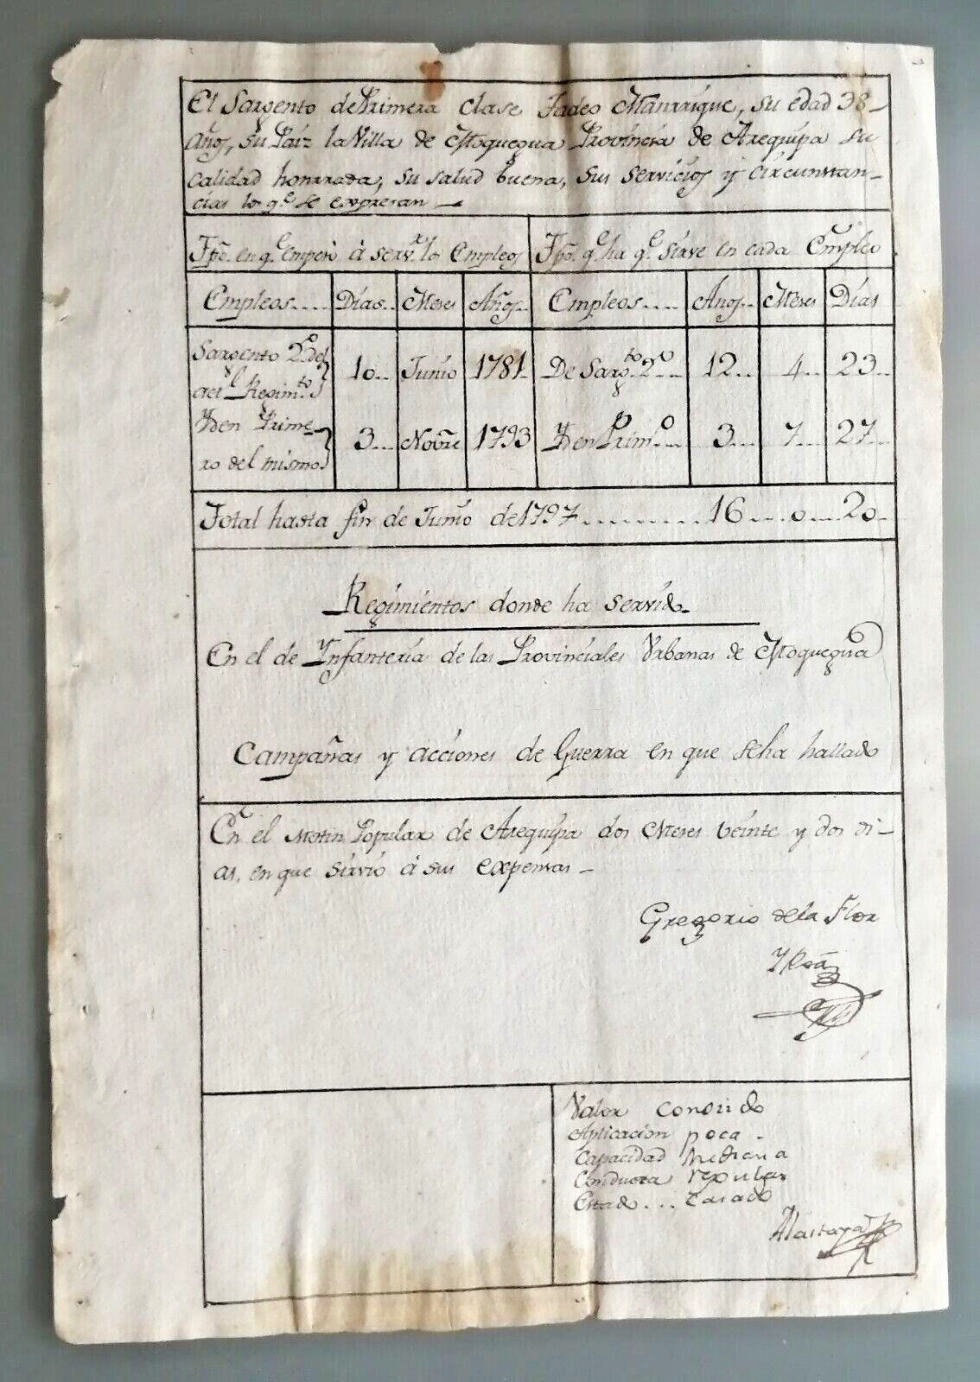 El Sargento de Primera clase Tadeo Manrrique, su edad 38
años, su Paíz la Villa de Moquegua Provincia de Arequipa su
calidad honrrada, su salud buena, sus servicios y circunstan-
cias los q.e se expresan
Tpo. en q.e empezó à serv.r los Empleos
Tpo. q.e ha q.e sirve en cada Empleo
Empleos.... Dias.. Meses Años.. Empleos.... Años.. Meses Dias
Sargento 2.o del
act.l Regim.to 10.. Junio 1781. De Sarg.to 2.o... 12.. 4.. 23..
Yden Prime-
ro del mismo 3... Novre 1793 Yden Prim.o... 3.. 7.. 27..
Total hasta fin de Junio de 1797......... 16... 0.... 20.
Regimientos donde ha servido
En el de Infanteria de las Provinciales Urbanas de Moquegua
Campañas y acciones de Guerra en que seha hallado
En el Motin Popular de Arequipa dos Meses veinte y dos di-
as, en que sirvió à sus expensas
Gregorio dela Flor
Valor conosido
Aplicacion poca.
Capacidad Mediana
Conducta regular
Estado... Casado